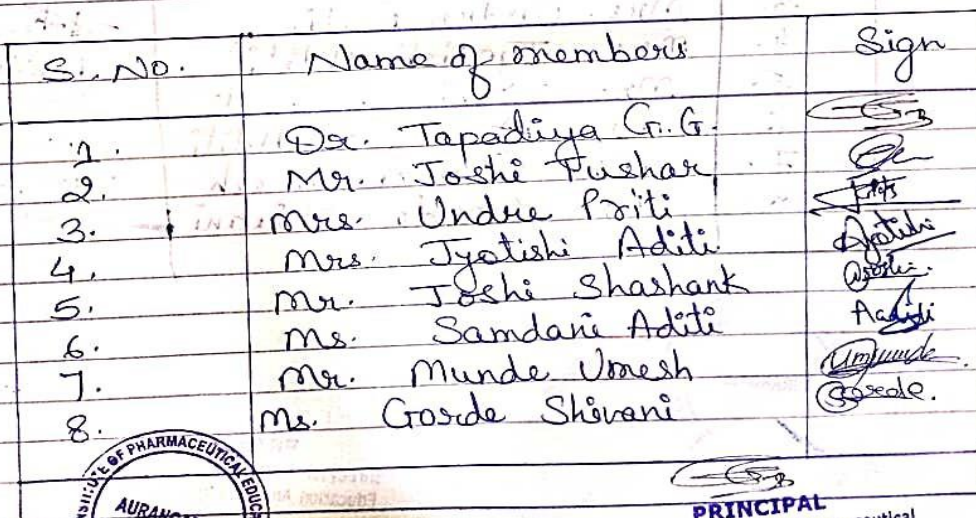 S. No. Name of members Sign
1. Dr. Tapadiya G. G.
2. Mr. Joshi Tushar
3. Mrs. Undre Priti
4. Mrs. Jyotishi Aditi Jyotishi
5. Mr. Joshi Shashank
6. Ms. Samdani Aditi Aaditi
7. Mr. Munde Umesh Umunde
8. Ms. Gorde Shivani Gorde.
OF PHARMACEUTICAL
PRINCIPAL